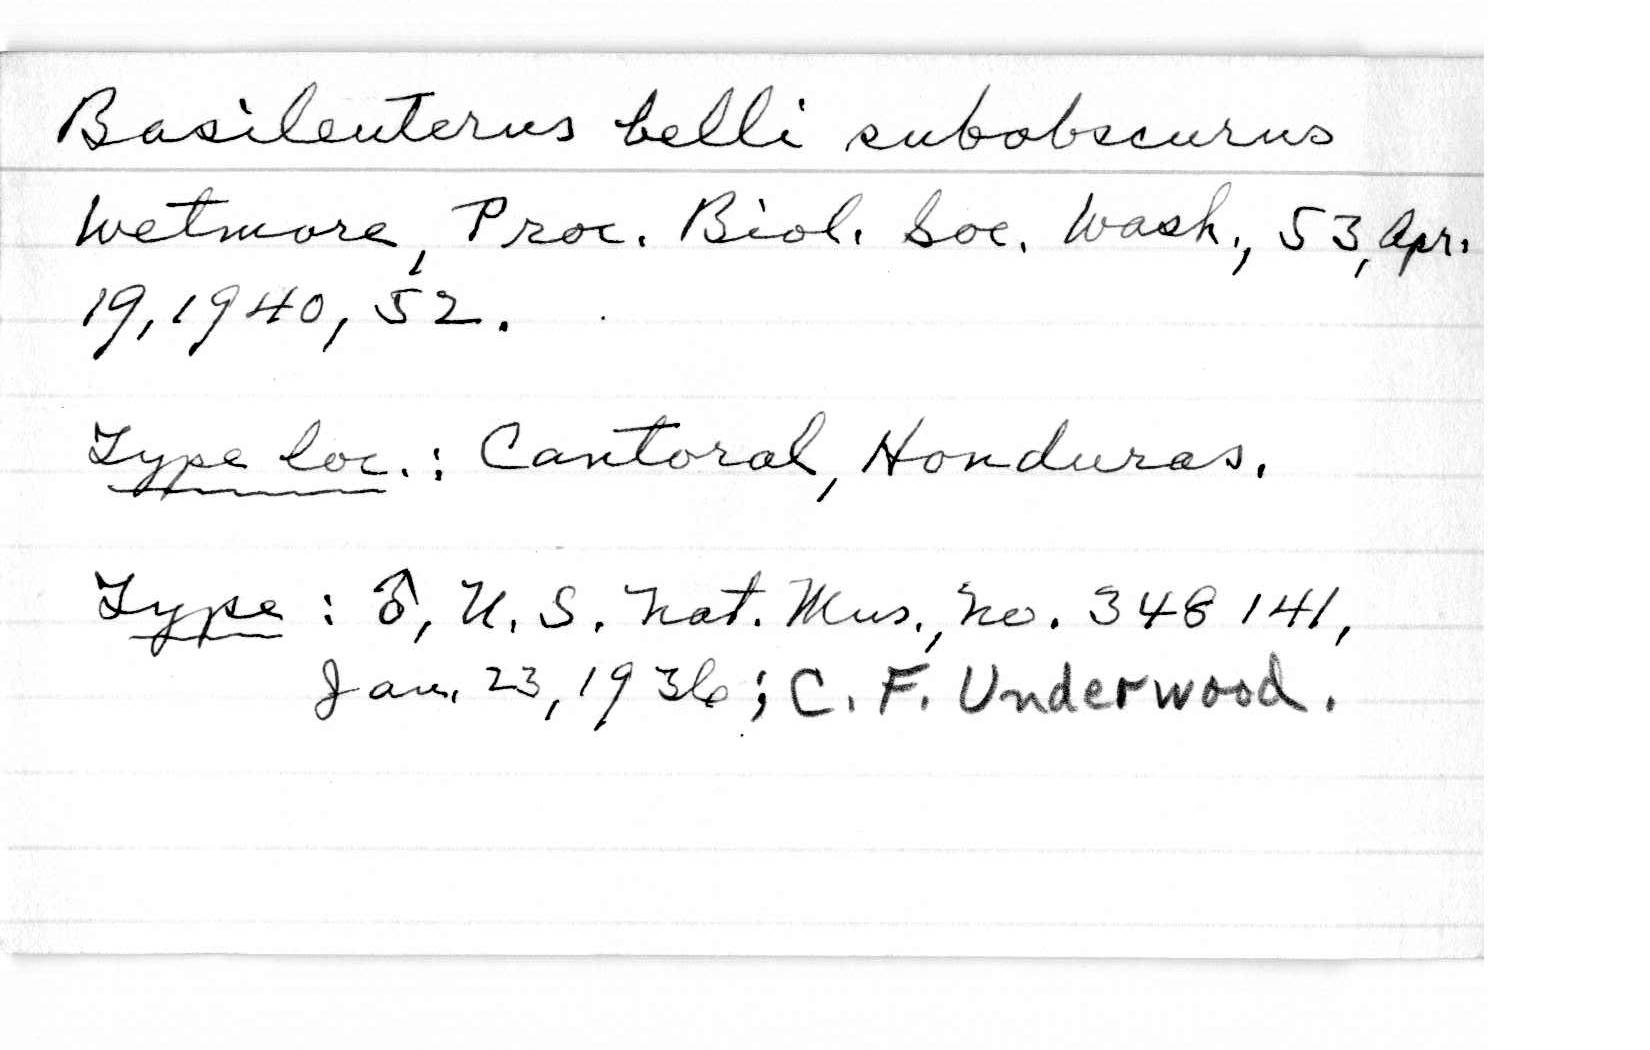 Basileuterus belli subobscurus
Wetmore, Proc. Biol. Soc. Wash., 53, Apr.
19, 1940, 52.
Type loc.: Cantoral, Honduras.
Type: ♂, U.S. Nat. Mus., no. 348141,
Jan. 23, 1936; C. F. Underwood.